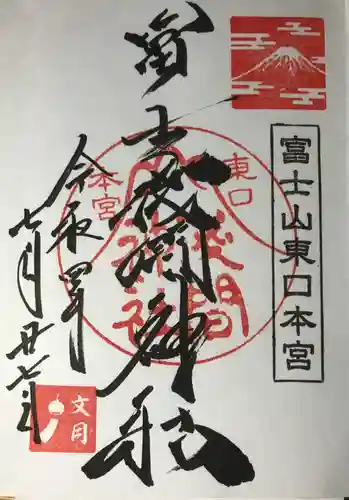 富士山東口本宮
富士浅間神社
東口
本宮
浅間
神社
令和四年
七月廿七日
文月